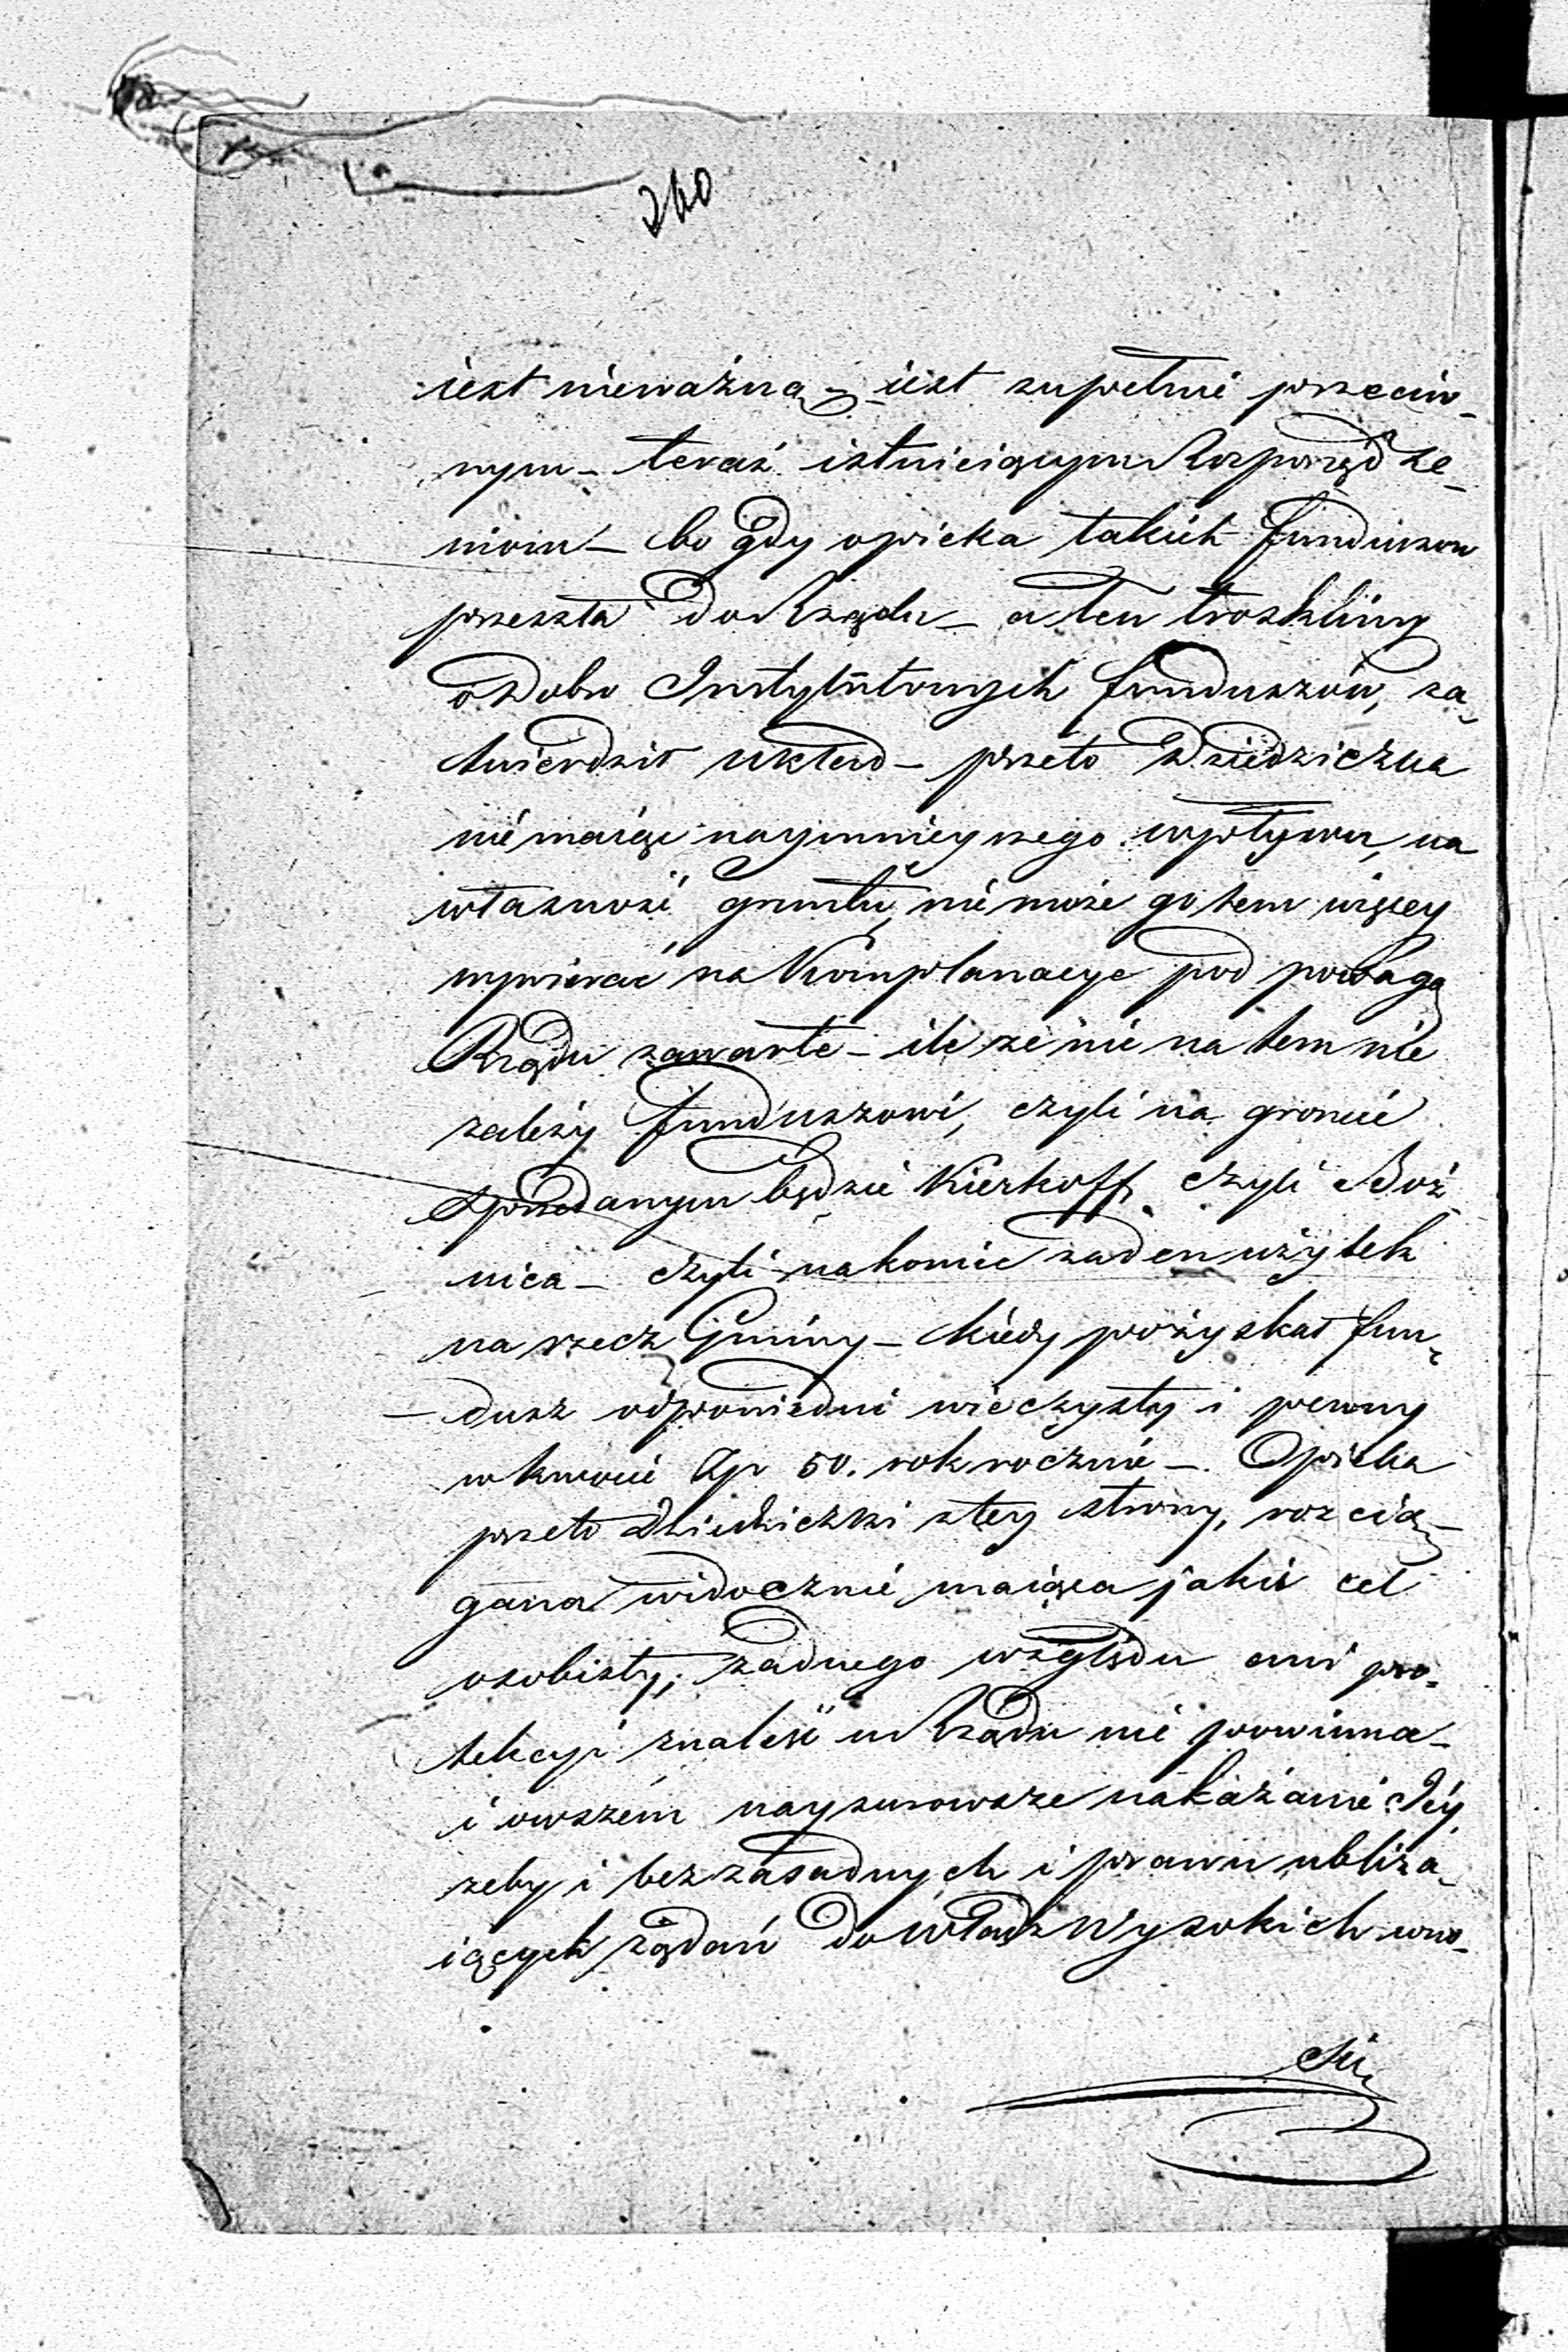 260
iest nieważną – iest zupełnie przeciw-
nym – teraź istnieiącym Rozporządze-
niom – bo gdy opieka takich funduszow
przeszła do Rządu – a ten troskliwy
o dobro Instytutowych funduszów, za-
twierdził układ – przeto Dziedziczka
nie maiąc naymnieyszego wpływu, na
własność gruntu, nie może go tem więcey
wywierać na Komplanacye pod powagą
Rządu zawarte – ile że nie na tem nie
zależy funduszowi, czyli na groncie
sprzedanym będzie Kierkoff, czyli Boż
nica – czyli nakoniec żaden użytek
na rzecz Gminy – kiedy pożyskał fun-
dusz odpowiedni wieczysty i pewny
w kwocie Zp 50. rok rocznie –. Opieka
przeto Dziedziczki z tey strony, rozcią-
gana widocznie maiąca jakiś cel
osobisty; żadnego względu ani pro-
tekcyi znaleść u Rządu nie powinna –
i owszem naysurowsze nakazanie Jey
żeby i bezzasadnych i prawu ubliża-
iących żądań do Władz Wysokich wno-